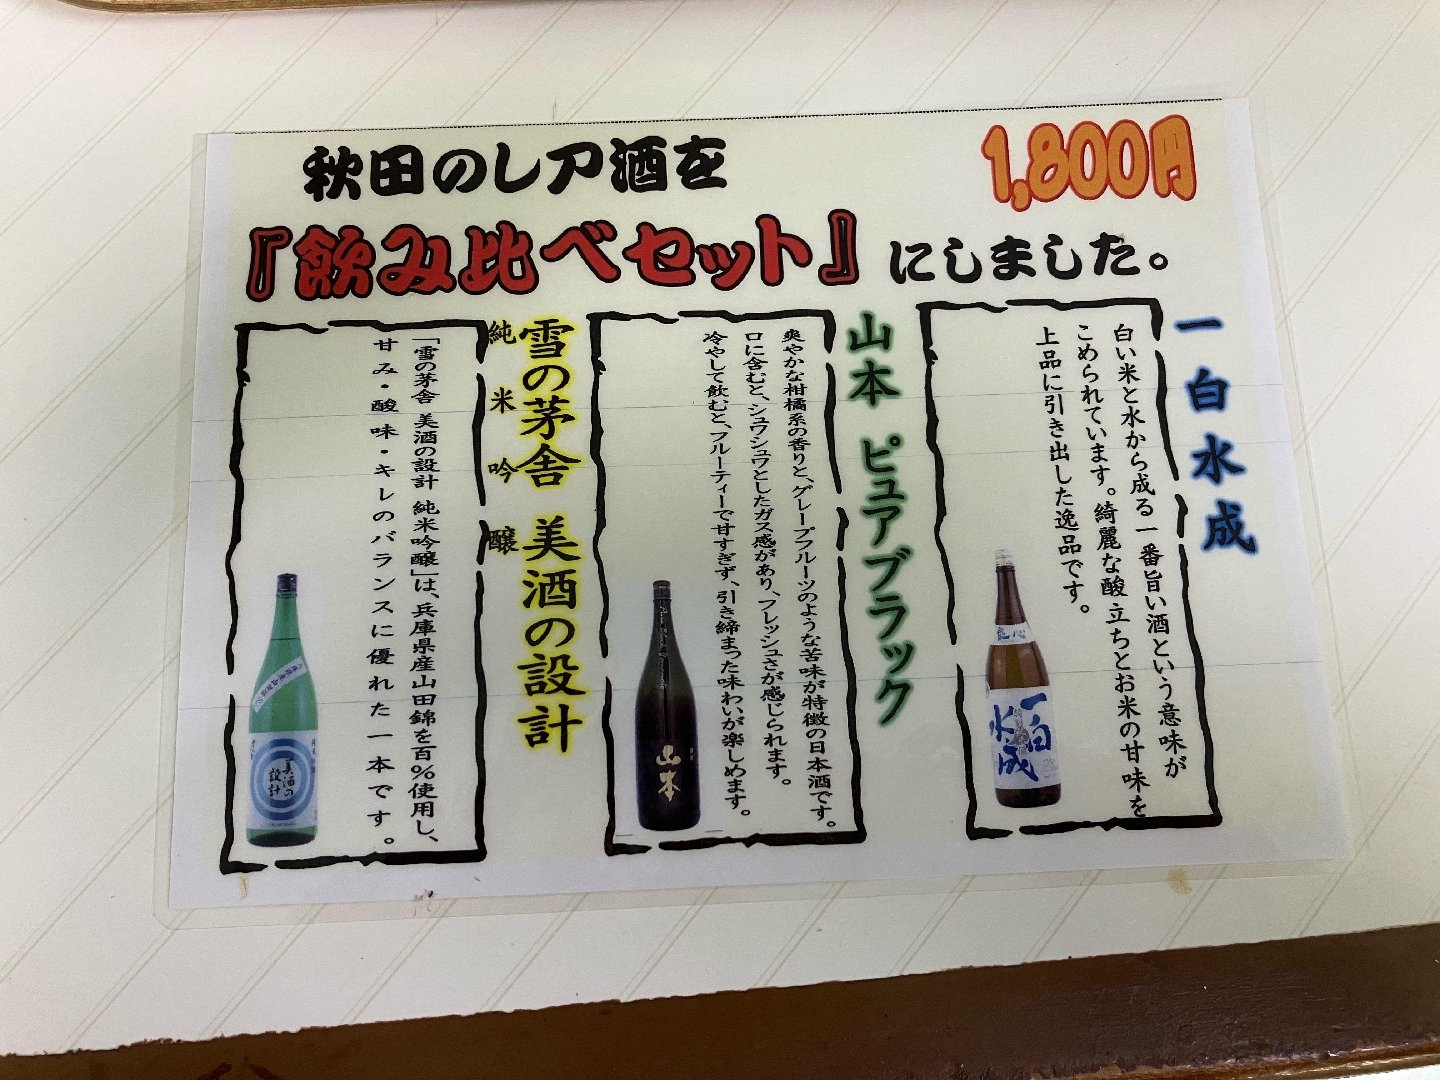 秋田のレア酒を
1,800円
『飲み比べセット』にしました。
一白水成
白い米と水から成る一番旨い酒という意味が
こめられています。綺麗な酸立ちとお米の甘味を
上品に引き出した逸品です。
良心
一白
水成
山本 ピュアブラック
爽やかな柑橘系の香りと、グレープフルーツのような苦味が特徴の日本酒です。
口に含むと、シュワシュワとしたガス感があり、フレッシュさが感じられます。
冷やして飲むと、フルーティーで甘すぎず、引き締まった味わいが楽しめます。
山本
雪の茅舎 美酒の設計
純米吟醸
「雪の茅舎 美酒の設計 純米吟醸」は、兵庫県産山田錦を百％使用し、
甘み・酸味・キレのバランスに優れた一本です。
美酒の
設計